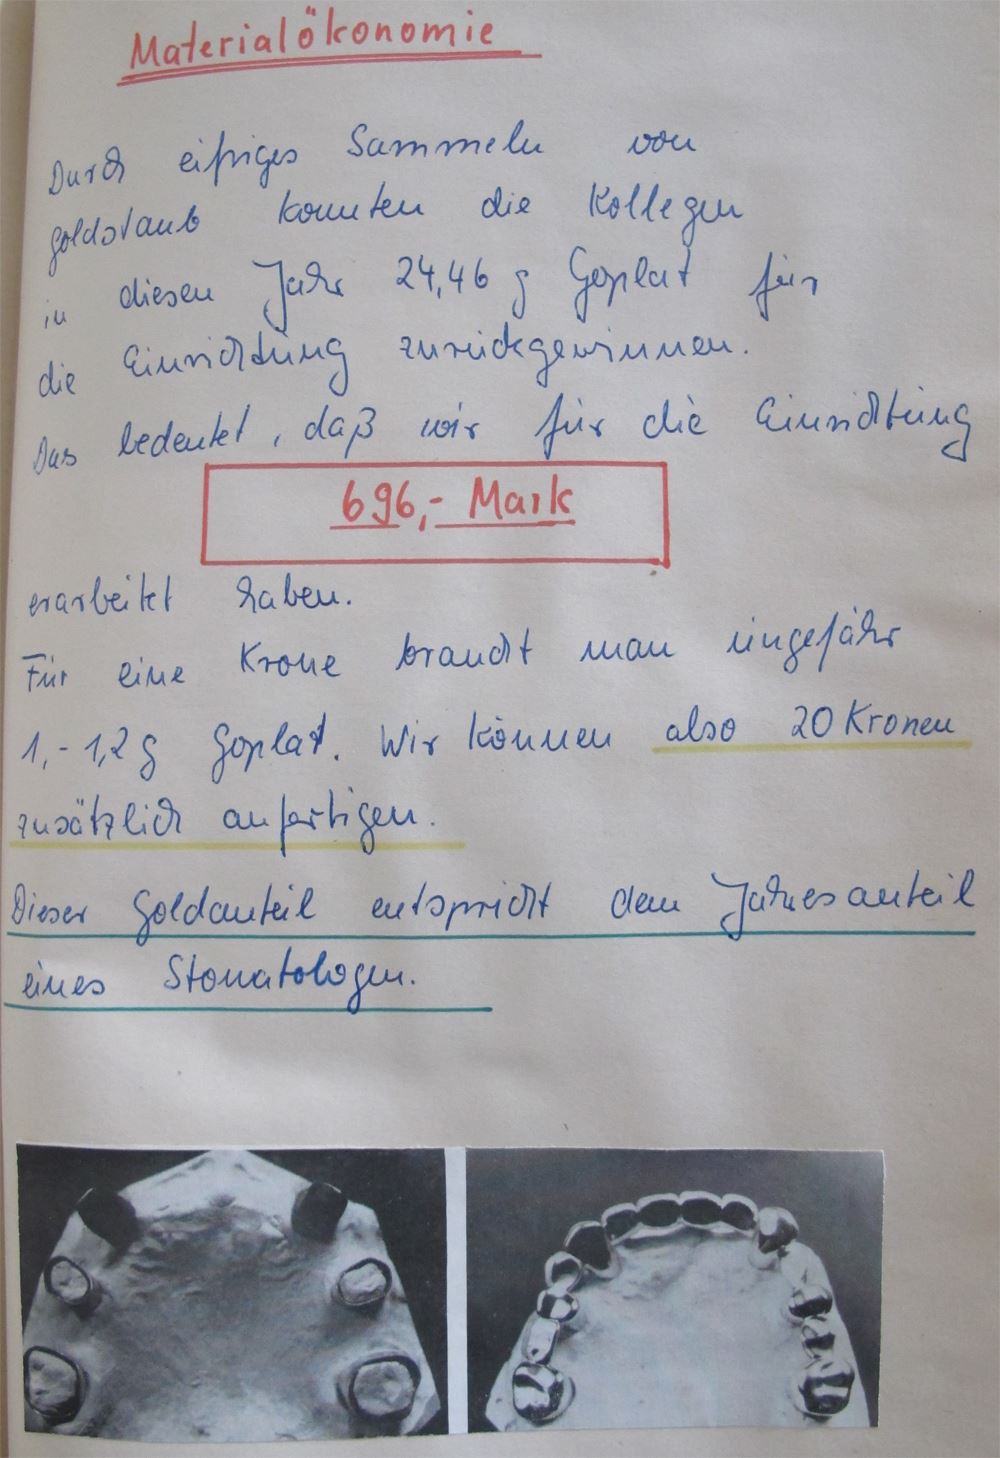 Materialökonomie
Durch eifriges Sammeln von
Goldstaub konnten die Kollegen
in diesen Jahr 24,46 g Goplat für
die Einrichtung zurückgewinnen.
Das bedeutet, daß wir für die Einrichtung
696,- Mark
erarbeitet haben.
Für eine Krone braucht man ungefähr
1,-1,2 g Goplat. Wir können also 20 Kronen
zusätzlich anfertigen.
Dieser Goldanteil entspricht dem Jahresanteil
eines Stomatologen.